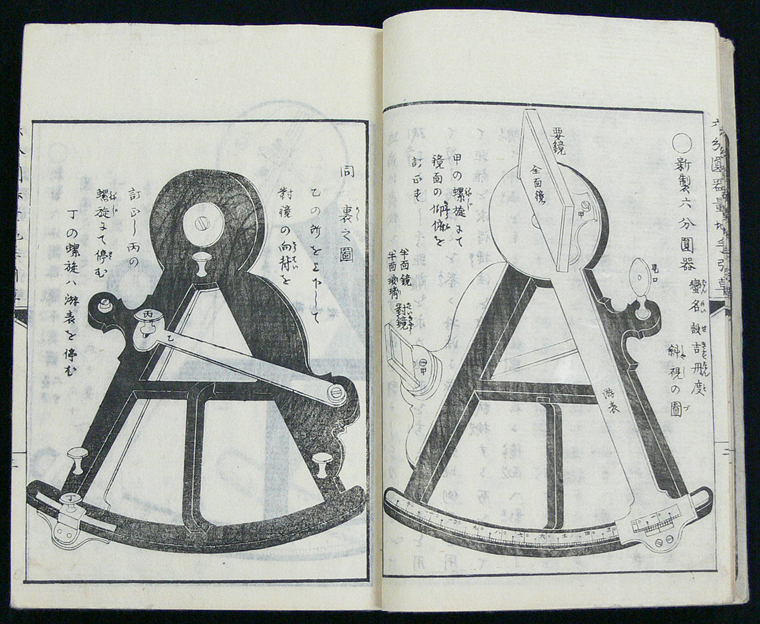 ○新製六分圓器
蠻名
斜視の圖
全面鏡
甲
甲の螺旋にて
鏡面の俯仰を
訂正す
半面鏡
半面玻瓈
對鏡
甲
游表
同裏之圖
乙の所を上下して
對鏡の向背を
訂正し丙の
螺旋にて停む
丁の螺旋ハ游表を停む
丙
乙
丁